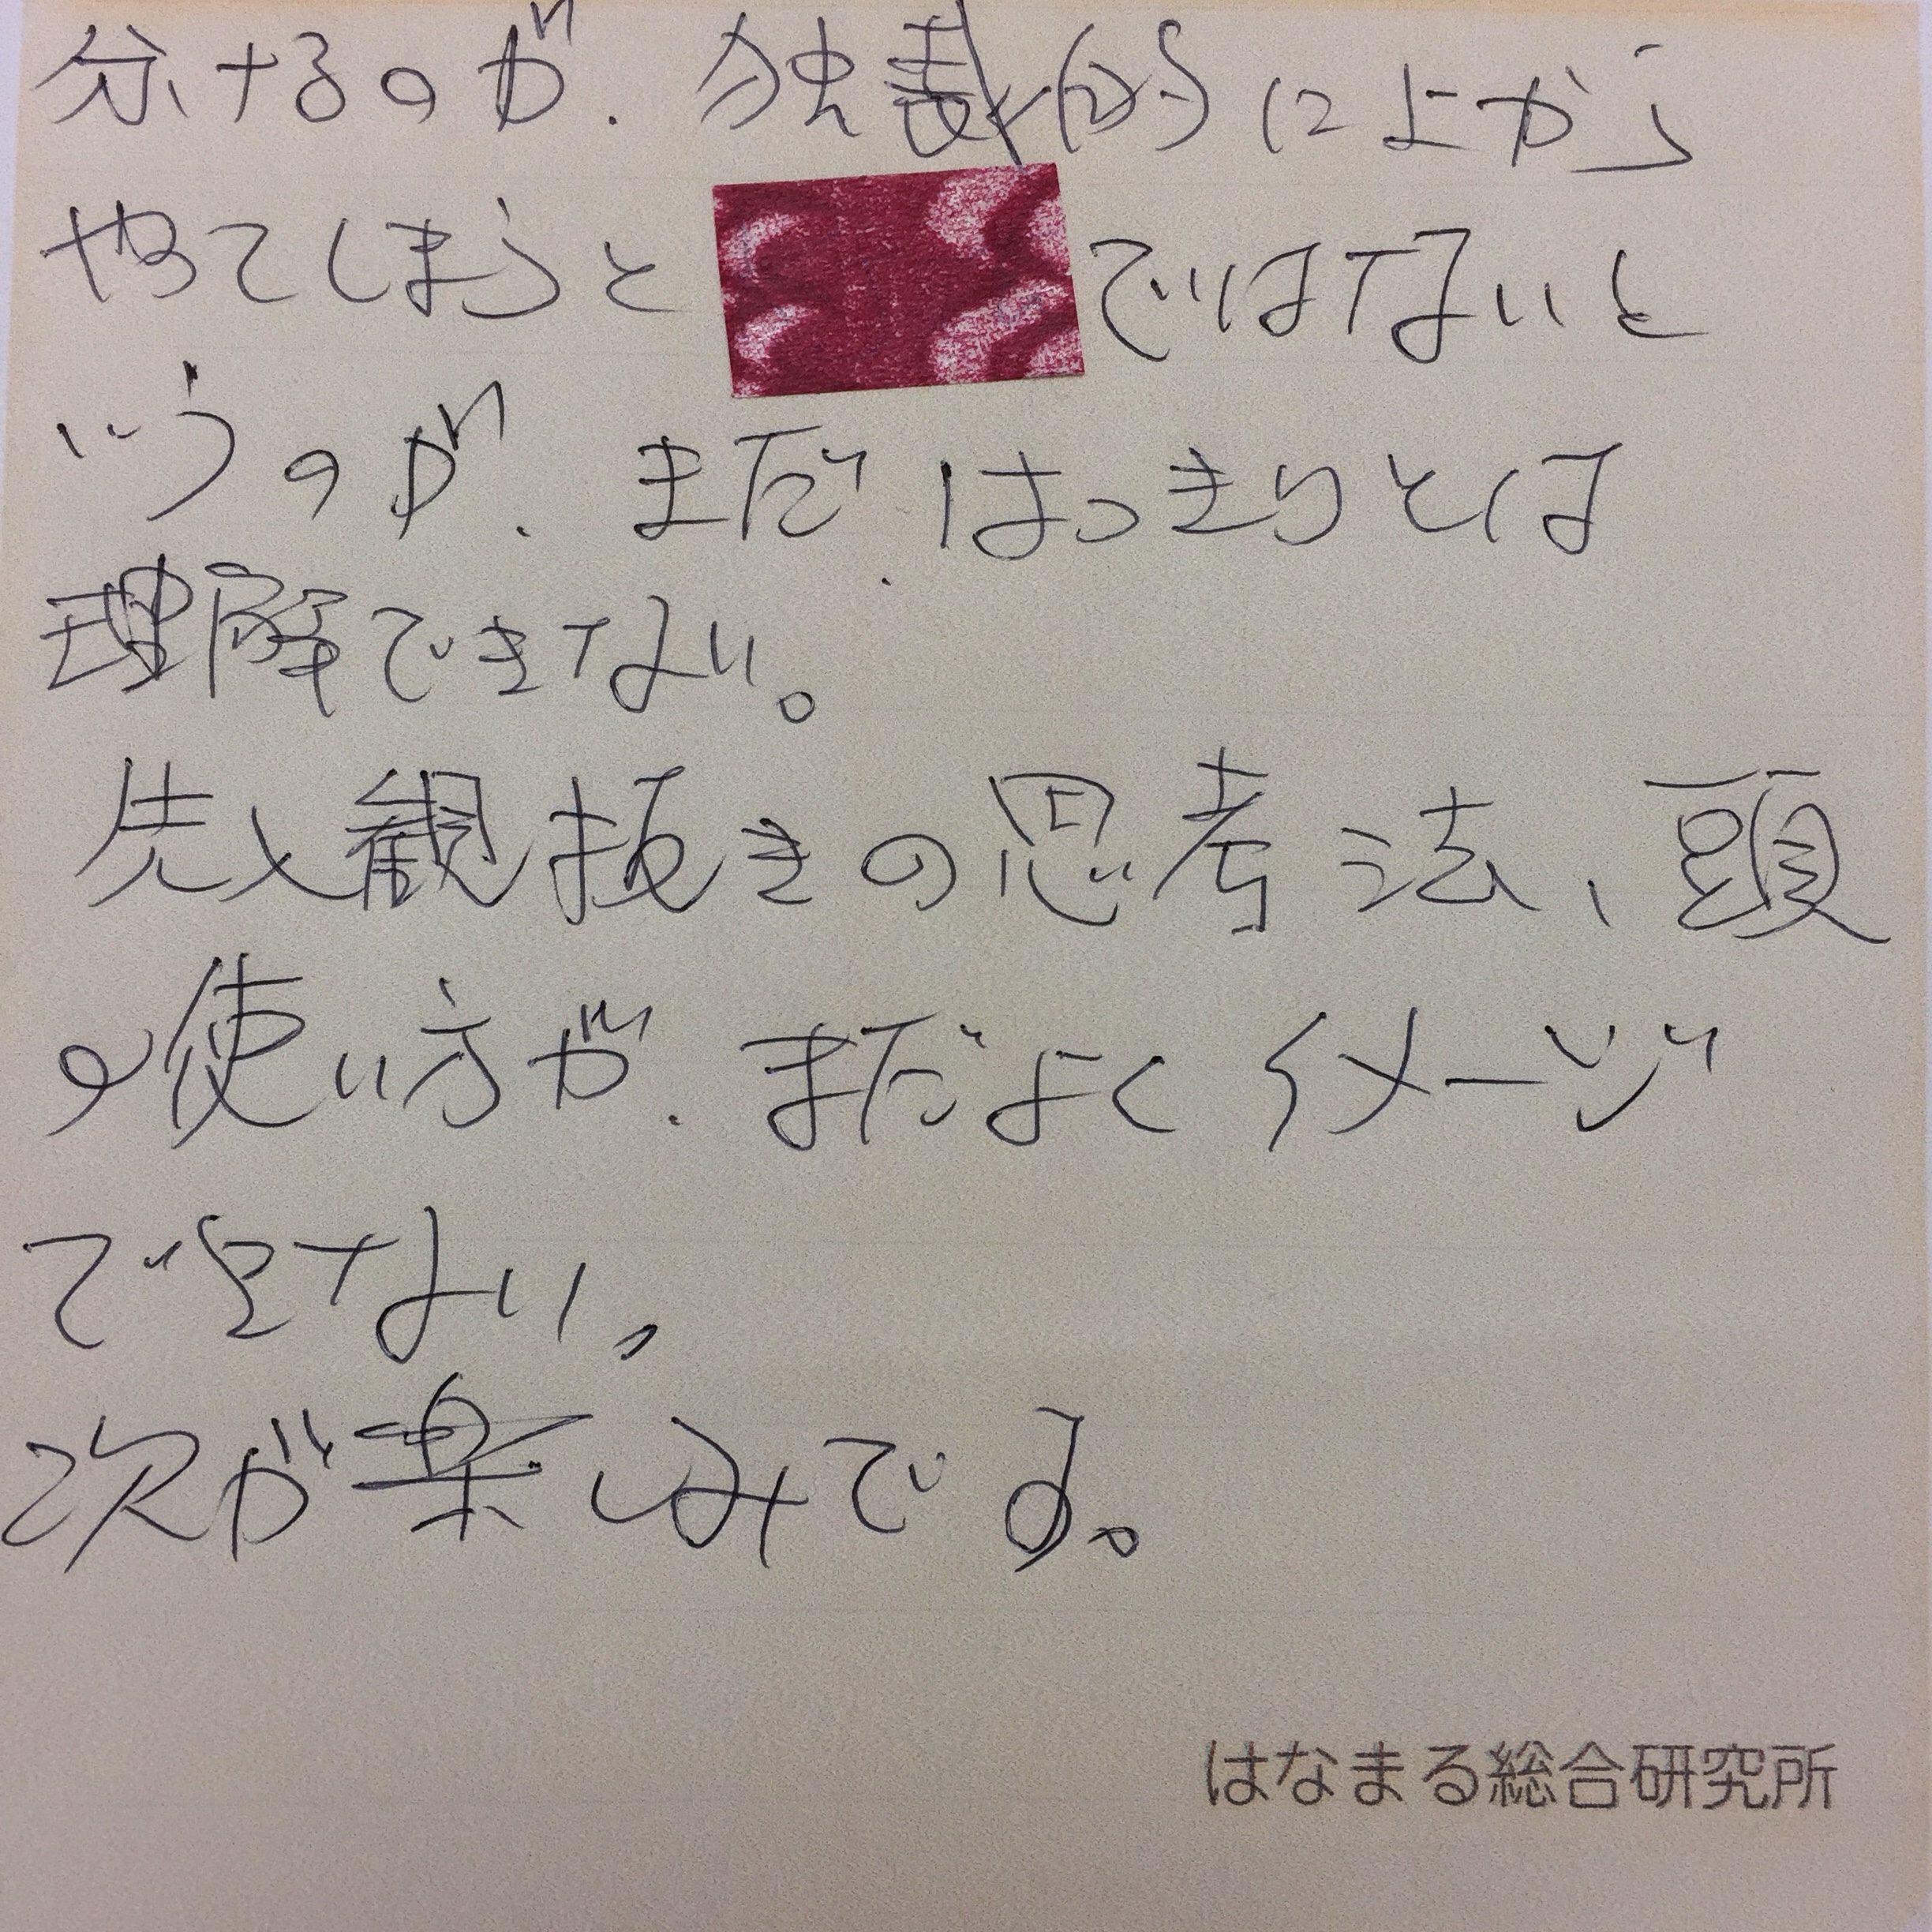 分けるのが、独裁的に上から
やってしまうと ではないと
いうのが、まだ、はっきりとは
理解できない。
先入観抜きの思考法、頭
の使い方が、まだよくイメージ
できない。
次が楽しみです。
はなまる総合研究所